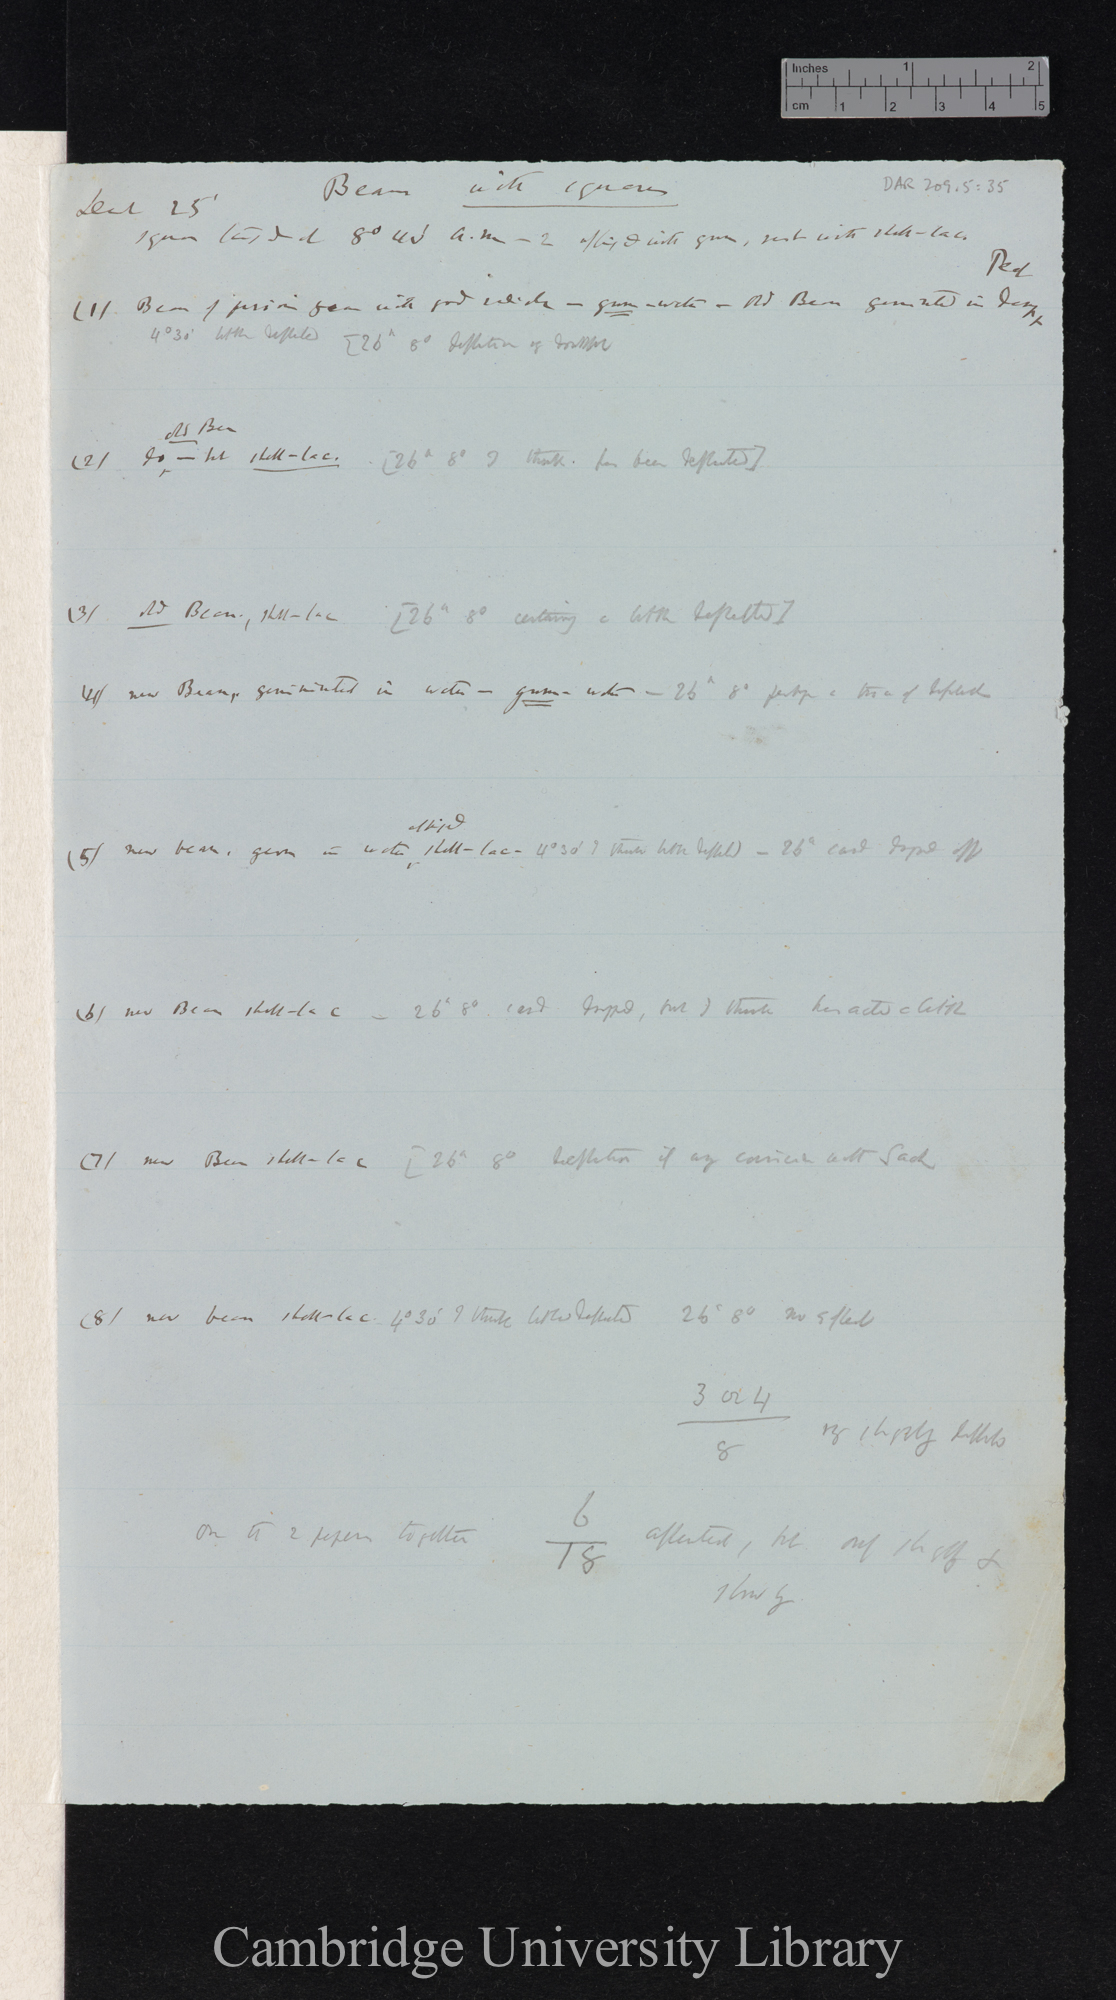 Inches 1 2
cm 1 2 3 4 5
DAR 209.5:35
Beans with squares
25'
squares 8° 45' a.m — 2 affixed with gum, rest with shell-lac.
Peat
(1) Bean of with good radicle — gum-water — old Bean germinated in damp
4°30' little deflected [26th 8° deflection doubtful
old Bean
(2) do — but shell-lac. [26th 8° I think has been deflected]
(3) old Bean, shell-lac [26th 8° certainly a little deflected]
(4) new Bean, germinated in water — gum-water — 26th 8° perhaps a trace of deflection
affixed
(5) new bean, germ in water, shell-lac — 4°30' I think little deflected — 26th card dropped off
(6) new Bean shell-lac — 26th 8° card dropped, but I think has acted a little
(7) new Bean shell-lac [26th 8° deflection if any coincides with Sachs
(8) new bean shell-lac 4°30' I think little deflected 26th 8° no effect
3 or 4
8 very slightly deflected
On the 2 papers together 6
18 affected, but only slightly &
slowly
Cambridge University Library